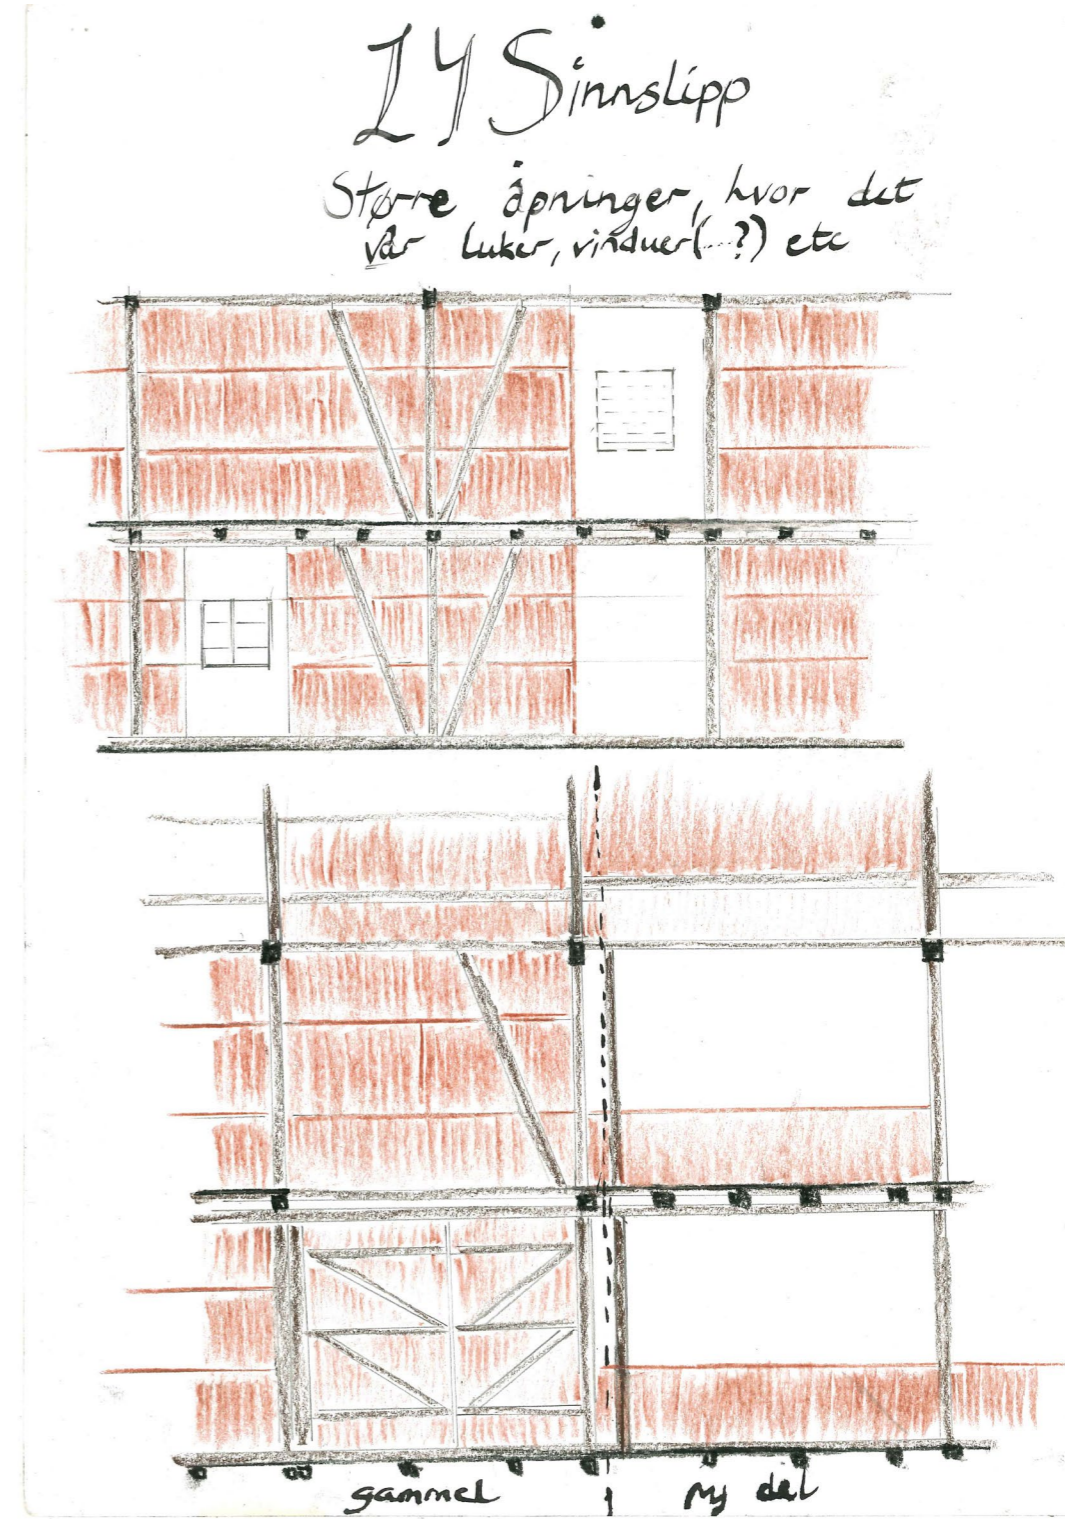 LYSinnslipp
Større åpninger, hvor det
var luker, vinduer(...?) etc
gammel
ny del